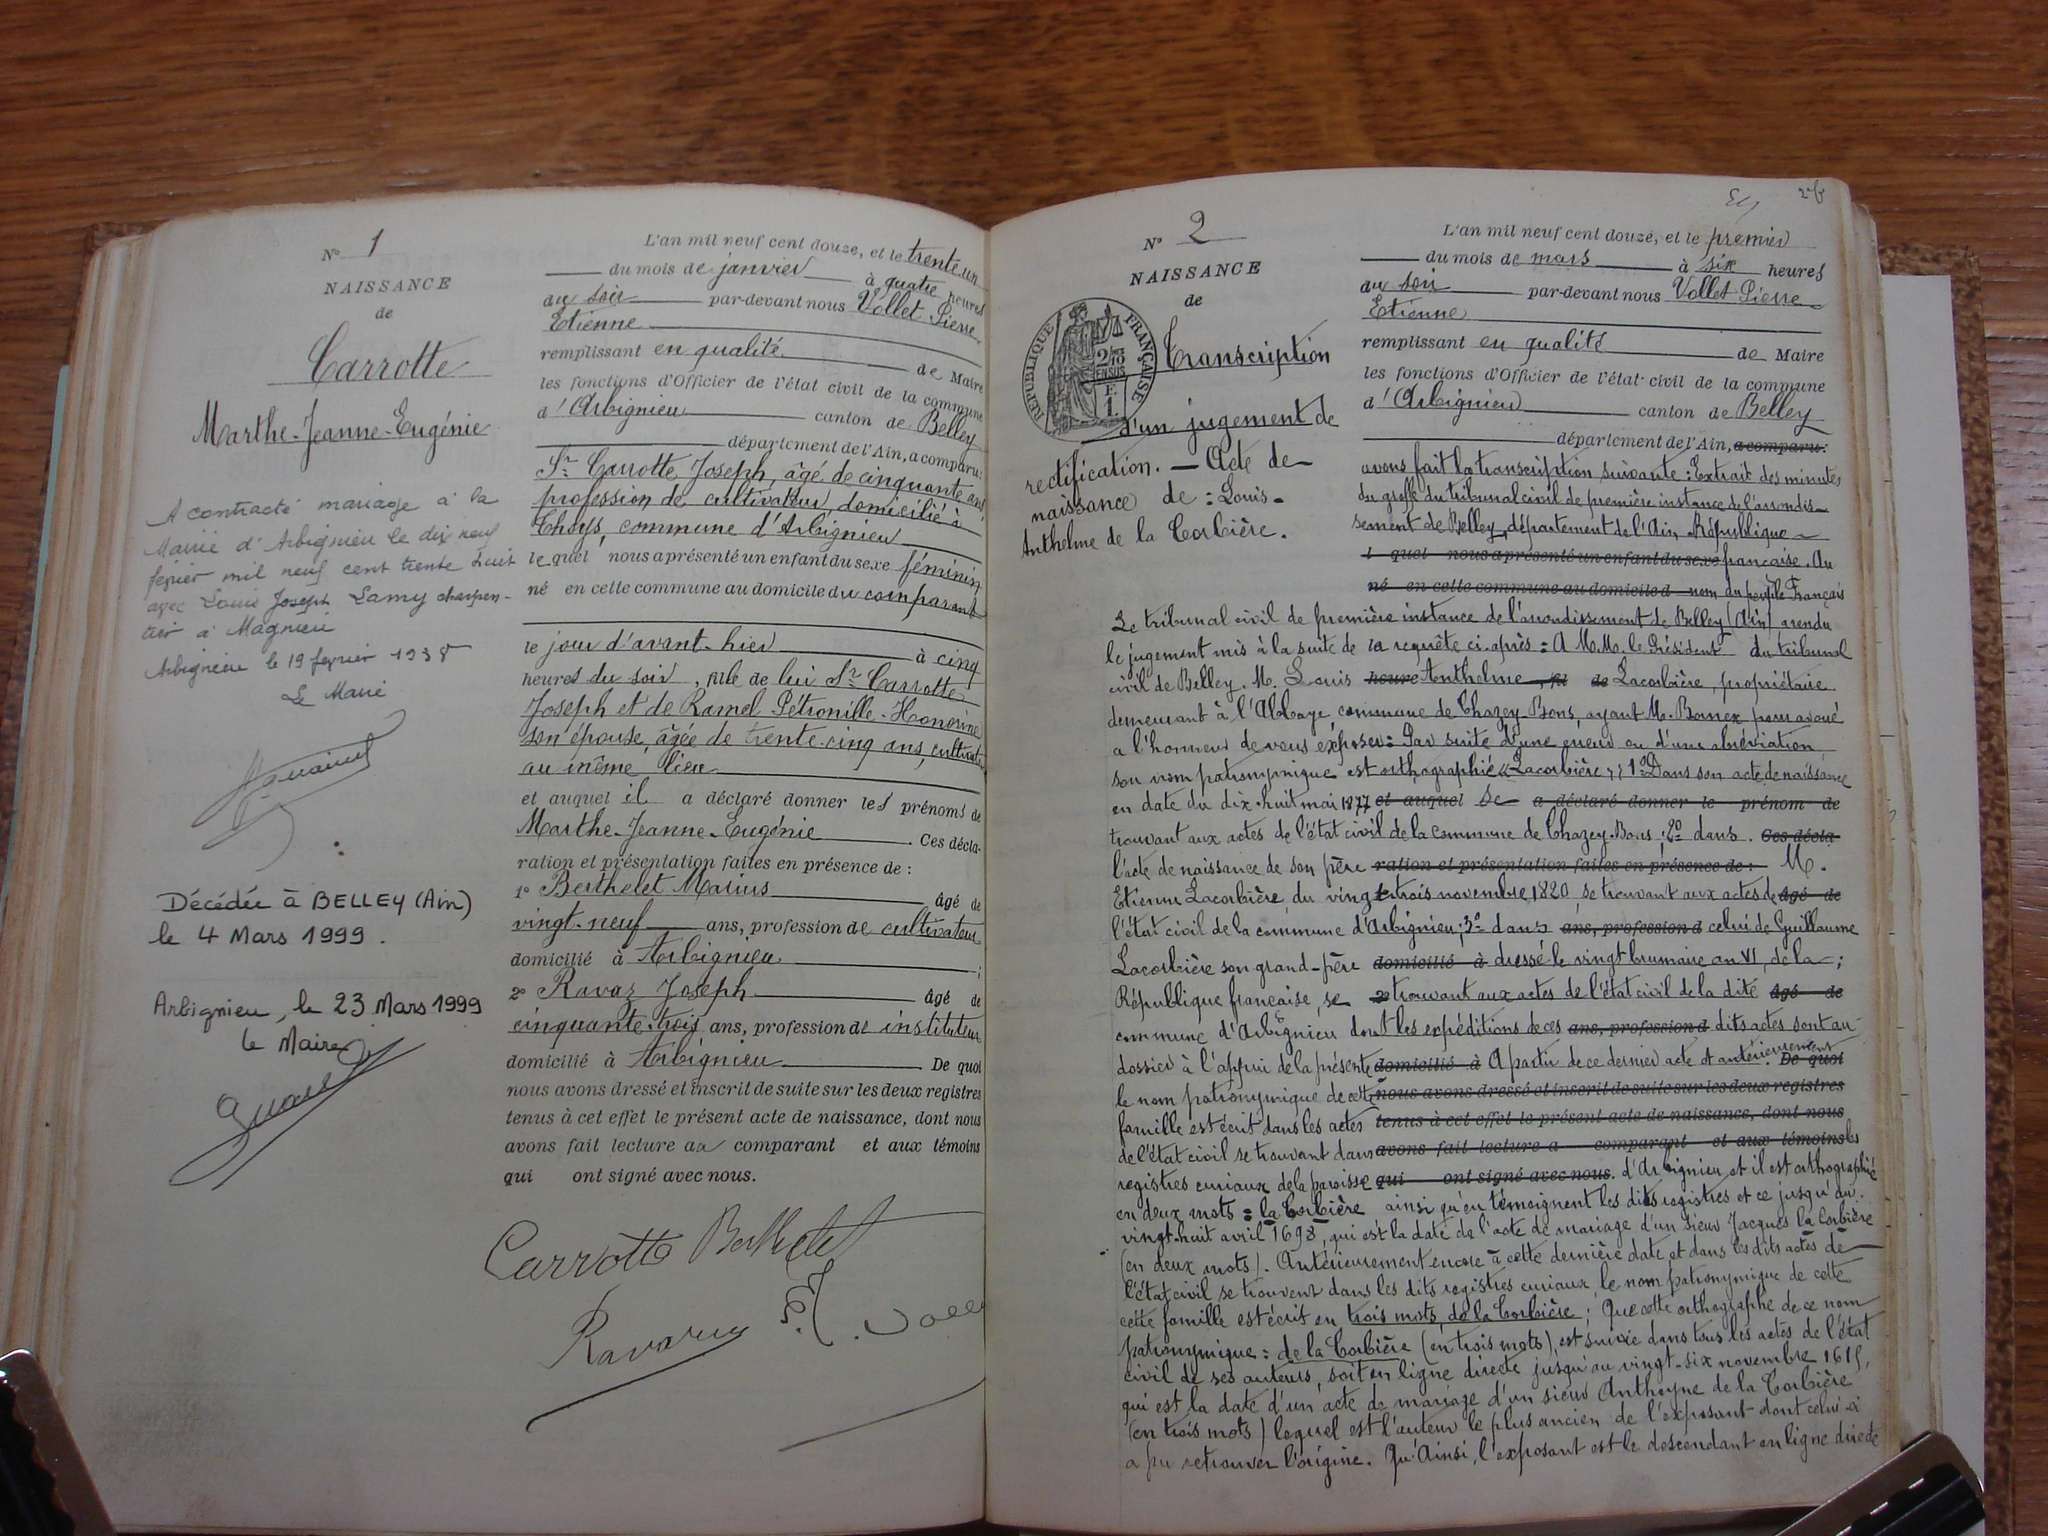 N° 1
NAISSANCE
de
Carrotte
Marthe-Jeanne-Eugénie
A contracté mariage à la
Mairie d'Arbignieu le dix neuf
février mil neuf cent trente huit
avec Louis Joseph Lamy charpen-
tier à Magnieu
Arbignieu le 19 février 1938
Le Maire
Décédée à BELLEY (Ain)
le 4 Mars 1999.
Arbignieu, le 23 Mars 1999
le Maire
L'an mil neuf cent douze, et le trente un
du mois de janvier à quatre heures
du soir par-devant nous Vollet Pierre
Etienne
remplissant en qualité de Maire
les fonctions d'Officier de l'état civil de la commune
d'Arbignieu canton de Belley
département de l'Ain, a comparu:
Sr Carrotte Joseph, âgé de cinquante ans
profession de cultivateur, domicilié à
Thoys, commune d'Arbignieu
lequel nous a présenté un enfant du sexe féminin
né en cette commune au domicile du comparant
le jour d'avant-hier à cinq
heures du soir, fille de lui Sr Carrotte
Joseph et de Ramel Pétronille-Honorine
son épouse, âgée de trente-cinq ans, cultivat
au même lieu
et auquel il a déclaré donner les prénoms de
Marthe-Jeanne-Eugénie. Ces décla-
ration et présentation faites en présence de :
1° Berthelet Marius âgé de
vingt-neuf ans, profession de cultivateur
domicilié à Arbignieu ;
2° Ravaz Joseph âgé de
cinquante-trois ans, profession de instituteur
domicilié à Arbignieu De quoi
nous avons dressé et inscrit de suite sur les deux registres
tenus à cet effet le présent acte de naissance, dont nous
avons fait lecture au comparant et aux témoins
qui ont signé avec nous.
Carrotte Berthelet
N° 2
NAISSANCE
de
RÉPUBLIQUE FRANÇAISE
Transcription
d'un jugement de
rectification. — Acte de
naissance de : Louis-
Anthelme de la Corbière.
L'an mil neuf cent douze, et le premier
du mois de mars à six heures
du soir par-devant nous Vollet Pierre
Etienne
remplissant en qualité de Maire
les fonctions d'Officier de l'état-civil de la commune
d'Arbignieu canton de Belley
département de l'Ain, a comparu:
avons fait la transcription suivante : Extrait des minutes
du greffe du tribunal civil de première instance de l'arrondis-
sement de Belley, département de l'Ain, République
l quel nous a présenté un enfant du sexe française. Au
né en cette commune au domicile d nom du peuple Français
Le tribunal civil de première instance de l'arrondissement de Belley (Ain) a rendu
le jugement mis à la suite de la requête ci-après : A M.M. le Président du tribunal
civil de Belley. M. Louis heure Anthelme, fil de Lacorbière, propriétaire
demeurant à l'Abbaye, commune de Chazey-Bons, ayant M. pour avoué
a l'honneur de vous exposer : Par suite d'une erreur ou d'une abréviation
son nom patronymique est orthographié « Lacorbière » : 1° Dans son acte de naissance
en date du dix-huit mai 1877 et auquel Se a déclaré donner le prénom de
trouvant aux actes de l'état civil de la commune de Chazey-Bons ; 2° dans Ces décla-
l'acte de naissance de son père ration et présentation faites en présence de : M.
Etienne Lacorbière, du vingt trois novembre 1820 se trouvant aux actes de âgé de
l'état civil de la commune d'Arbignieu ; 3° dans ans, profession d celui de Guillaume
Lacorbière son grand-père domicilié à dressé le vingt brumaire an VI, de la ;
République française, se 2° trouvant aux actes de l'état civil de la dite âgé de
commune d'Arbignieu dont les expéditions de ces ans, profession d dits actes sont au
dossier à l'appui de la présente domicilié à A partir de ce dernier acte et antérieurement De quoi
le nom patronymique de cette nous avons dressé et inscrit de suite sur les deux registres
famille est écrit dans les actes tenus à cet effet le présent acte de naissance, dont nous
de l'état civil se trouvant dans avons fait lecture a comparant et aux témoins les
registres curiaux de la paroisse qui ont signé avec nous. d'Arbignieu et il est orthographié
en deux mots : la Corbière ainsi qu'en témoignent les dits registres et ce jusqu'au
vingt-huit avril 1698, qui est la date de l'acte de mariage d'un sieur Jacques la Corbière
(en deux mots). Antérieurement encore à cette dernière date et dans les dits actes de
l'état civil se trouvent dans les dits registres curiaux, le nom patronymique de cette
cette famille est écrit en trois mots de la Corbière ; Que cette orthographe de ce nom
patronymique : de la Corbière (en trois mots) est suivie dans tous les actes de l'état
civil de ses auteurs, soit en ligne directe jusqu'au vingt-six novembre 1615,
qui est la date d'un acte de mariage d'un sieur Anthoyne de la Corbière
(en trois mots) lequel est l'auteur le plus ancien de l'exposant dont celui-ci
a pu retrouver l'origine. Qu'Ainsi, l'exposant est le descendant en ligne directe